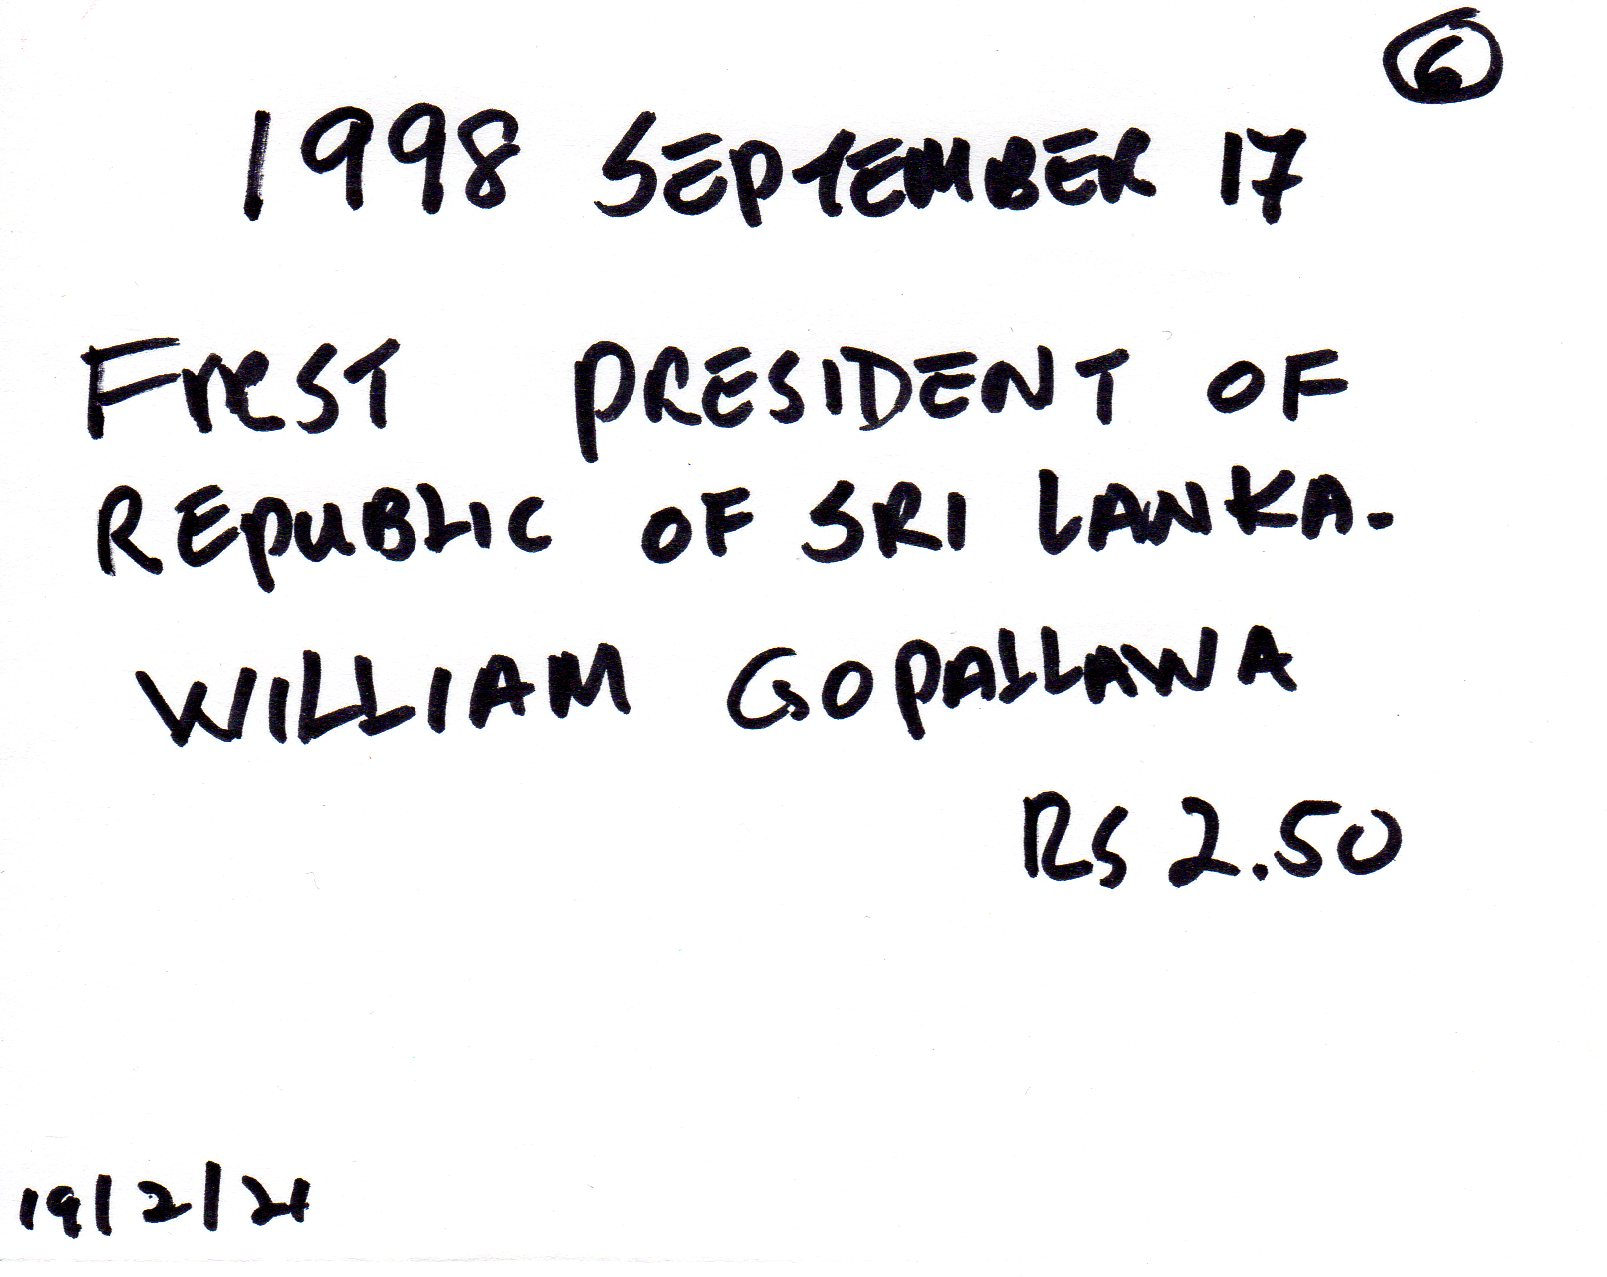 6
1998 SEPTEMBER 17
FIRST PRESIDENT OF
REPUBLIC OF SRI LANKA.
WILLIAM GOPALLAWA
RS 2.50
19/2/21